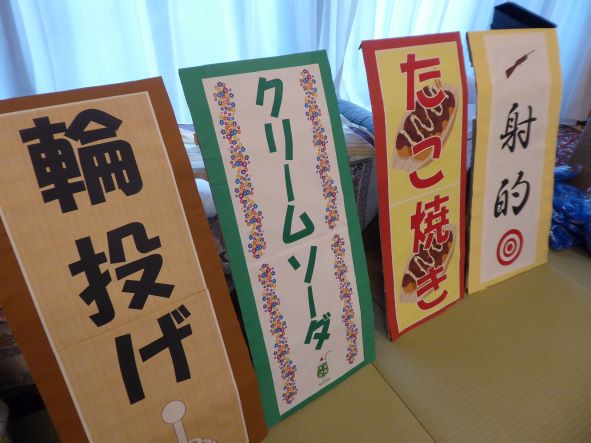 輪投げ
クリームソーダ
たこ焼き
射的